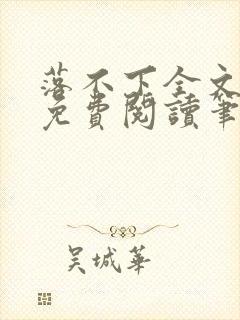 落不下全文
免費閱讀筆
吴城華